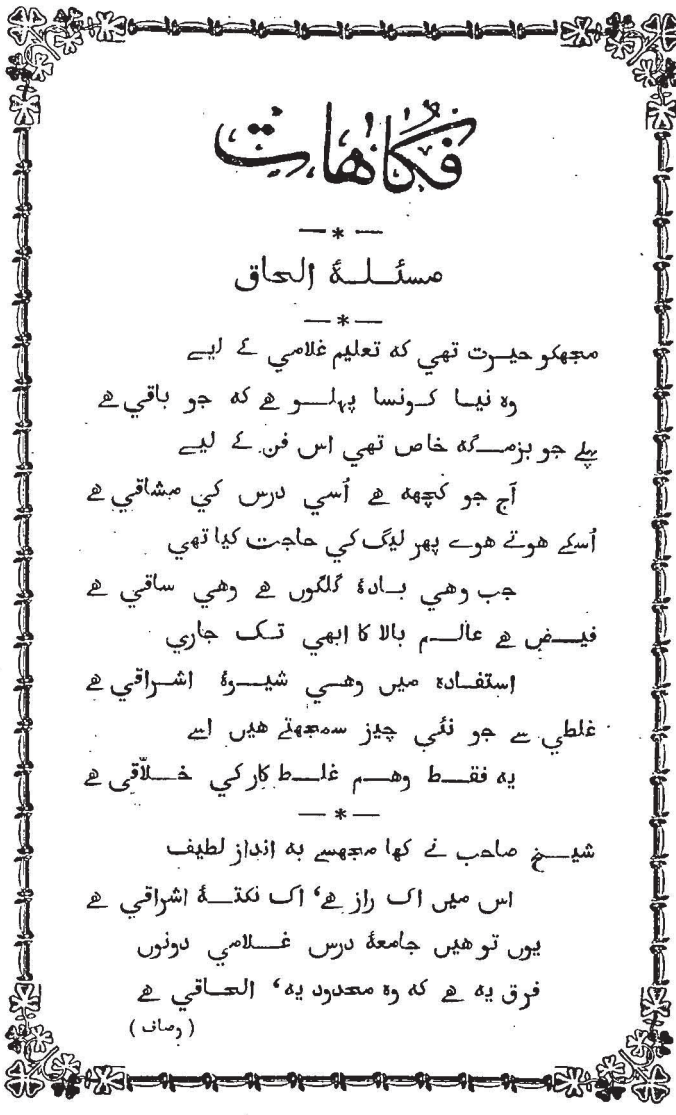 فکاہات
— * —
مسئلۂ الحاق
— * —
مجھکو حیرت تھي کہ تعلیم غلامي کے لیے
وہ نیا کونسا پہلو ہے کہ جو باقي ہے
پہلے جو بزمگہ خاص تھي اس فن کے لیے
آج جو کچھہ ہے اُسي درس کي مشاقي ہے
اُسکے ہوتے ہوے پھر لیگ کي حاجت کیا تھي
جب وہي بادۂ گلگوں ہے وہي ساقي ہے
فیض ہے عالم بالا کا ابھي تک جاري
استفادہ میں وہي شیوۂ اشراقي ہے
غلطي سے جو نئي چیز سمجھتے ہیں اسے
یہ فقط وہم غلط کار کي خلّاقي ہے
— * —
شیخ صاحب نے کہا مجھسے بہ انداز لطیف
اس میں اک راز ہے، اک نکتۂ اشراقي ہے
یوں تو ہیں جامعۂ درس غلامي دونوں
فرق یہ ہے کہ وہ محدود یہ، الحاقي ہے
( وصاف )